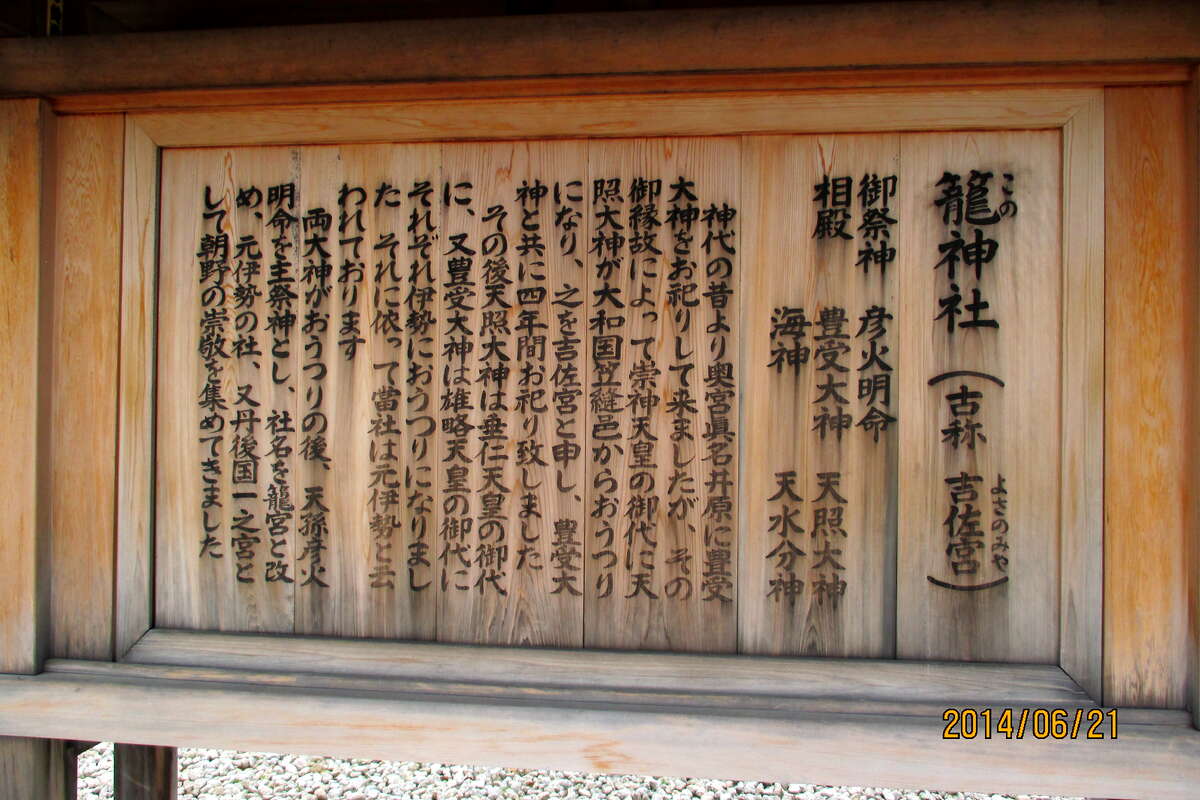 籠神社（古称 吉佐宮）
この
よさのみや
御祭神 彦火明命
相殿 豊受大神 天照大神
海神 天水分神
神代の昔より奥宮眞名井原に豊受
大神をお祀りして来ましたが、その
御縁故によって崇神天皇の御代に天
照大神が大和国笠縫邑からおうつり
になり、之を吉佐宮と申し、豊受大
神と共に四年間お祀り致しました
その後天照大神は垂仁天皇の御代
に、又豊受大神は雄略天皇の御代に
それぞれ伊勢におうつりになりまし
た それに依って當社は元伊勢と云
われております
両大神がおうつりの後、天孫彦火
明命を主祭神とし、社名を籠宮と改
め、元伊勢の社、又丹後国一之宮と
して朝野の崇敬を集めてきました
2014/06/21